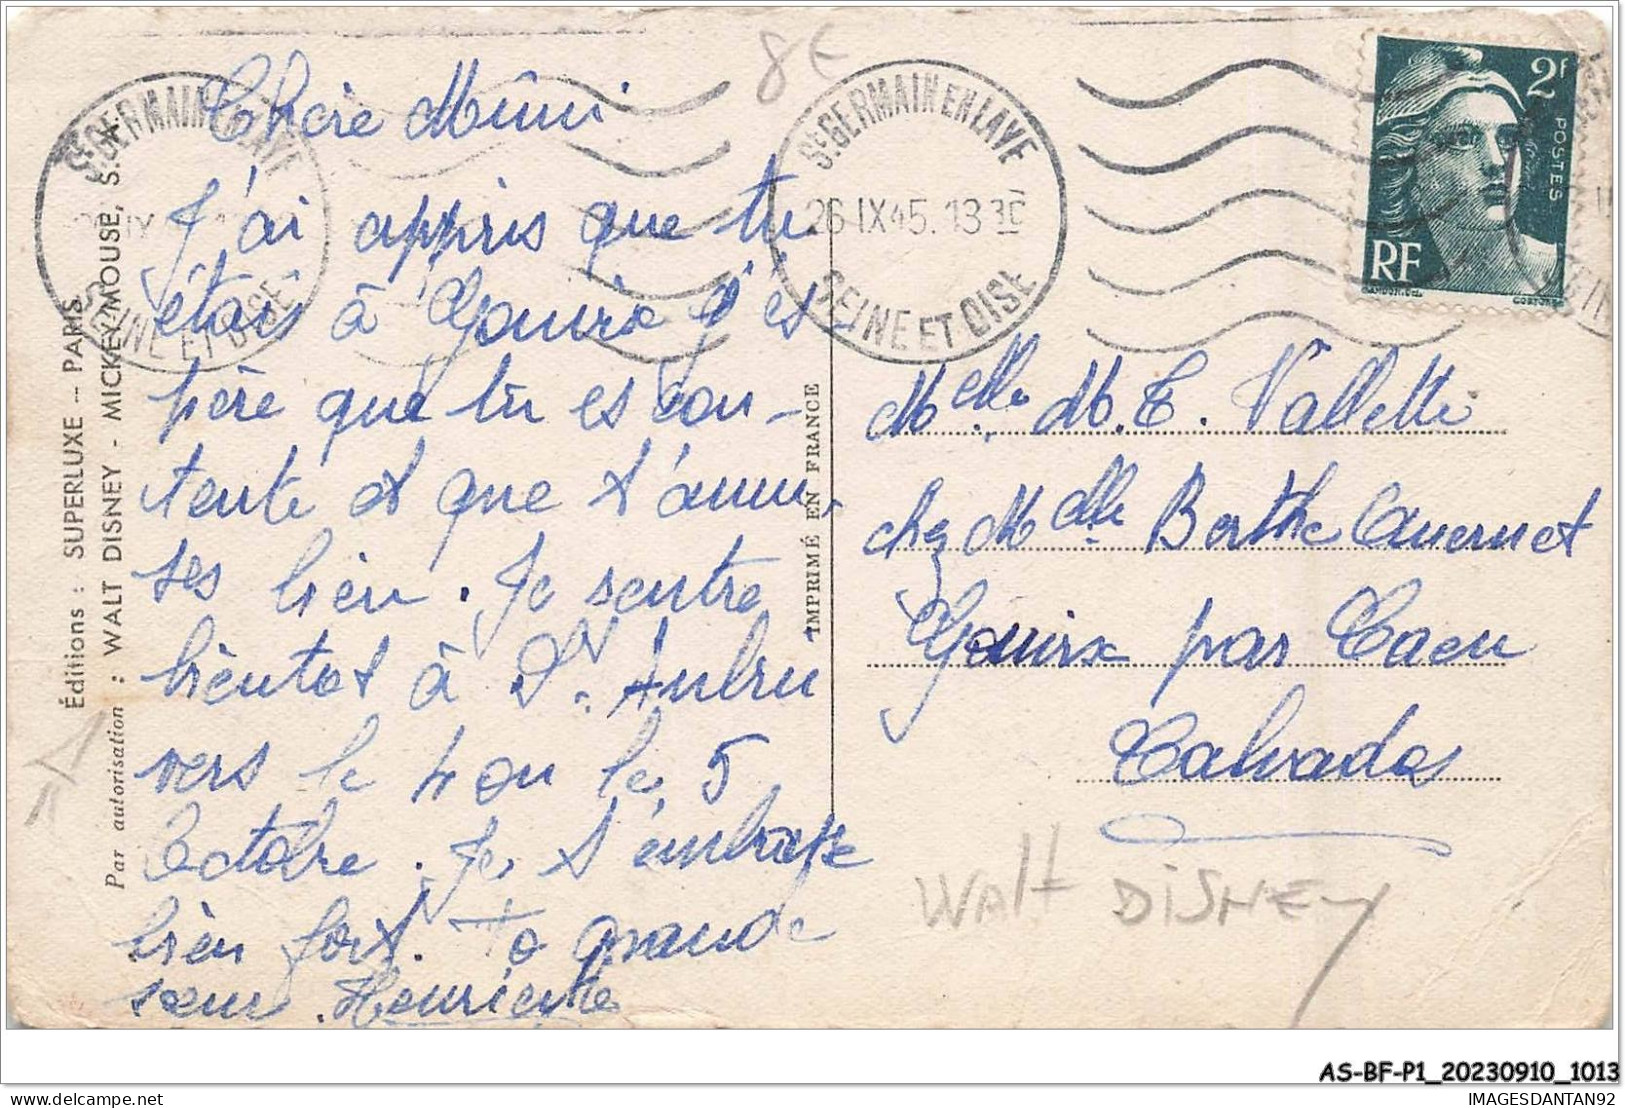 8€
Chère Mimi
J'ai appris que tu
étais à Yquirx J'es
père que tu es con-
tente et que t'amu-
ses bien. Je rentre
bientot à St. Aubin
vers le 4 ou le 5
Octobre. Je t'embrasse
bien fort. Ta grande
sœur. Henriette
Éditions : SUPERLUXE -- PARIS
Par autorisation : WALT DISNEY - MICKEY MOUSE, S.A.
IMPRIMÉ EN FRANCE
ST GERMAIN EN LAYE
SEINE ET OISE
ST GERMAIN EN LAYE
26 IX 45. 13
SEINE ET OISE
2F
POSTES
RF
Melle M.T. Vallette
chez Melle Berthe Auvernet
par Caen
Calvados
WALT DISNEY
AS-BF-P1_20230910_1013
IMAGESDANTAN92